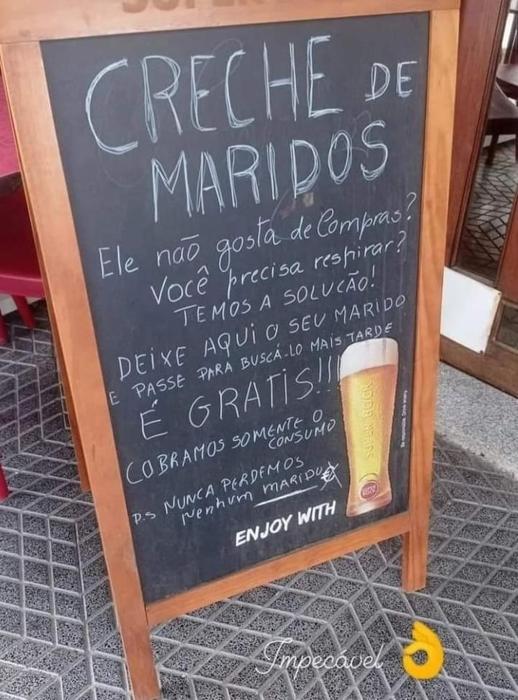 CRECHE DE
MARIDOS
Ele não gosta de Compras?
Você precisa respirar?
TEMOS A SOLUCÃO!
DEIXE AQUI O SEU MARIDO
E PASSE PARA BUSCÁ-LO MAIS TARDE
É GRATIS!!!
COBRAMOS SOMENTE O
CONSUMO
P.S NUNCA PERDEMOS
Nenhum MARIDO
ENJOY WITH
SUPER BOCK
Impecável